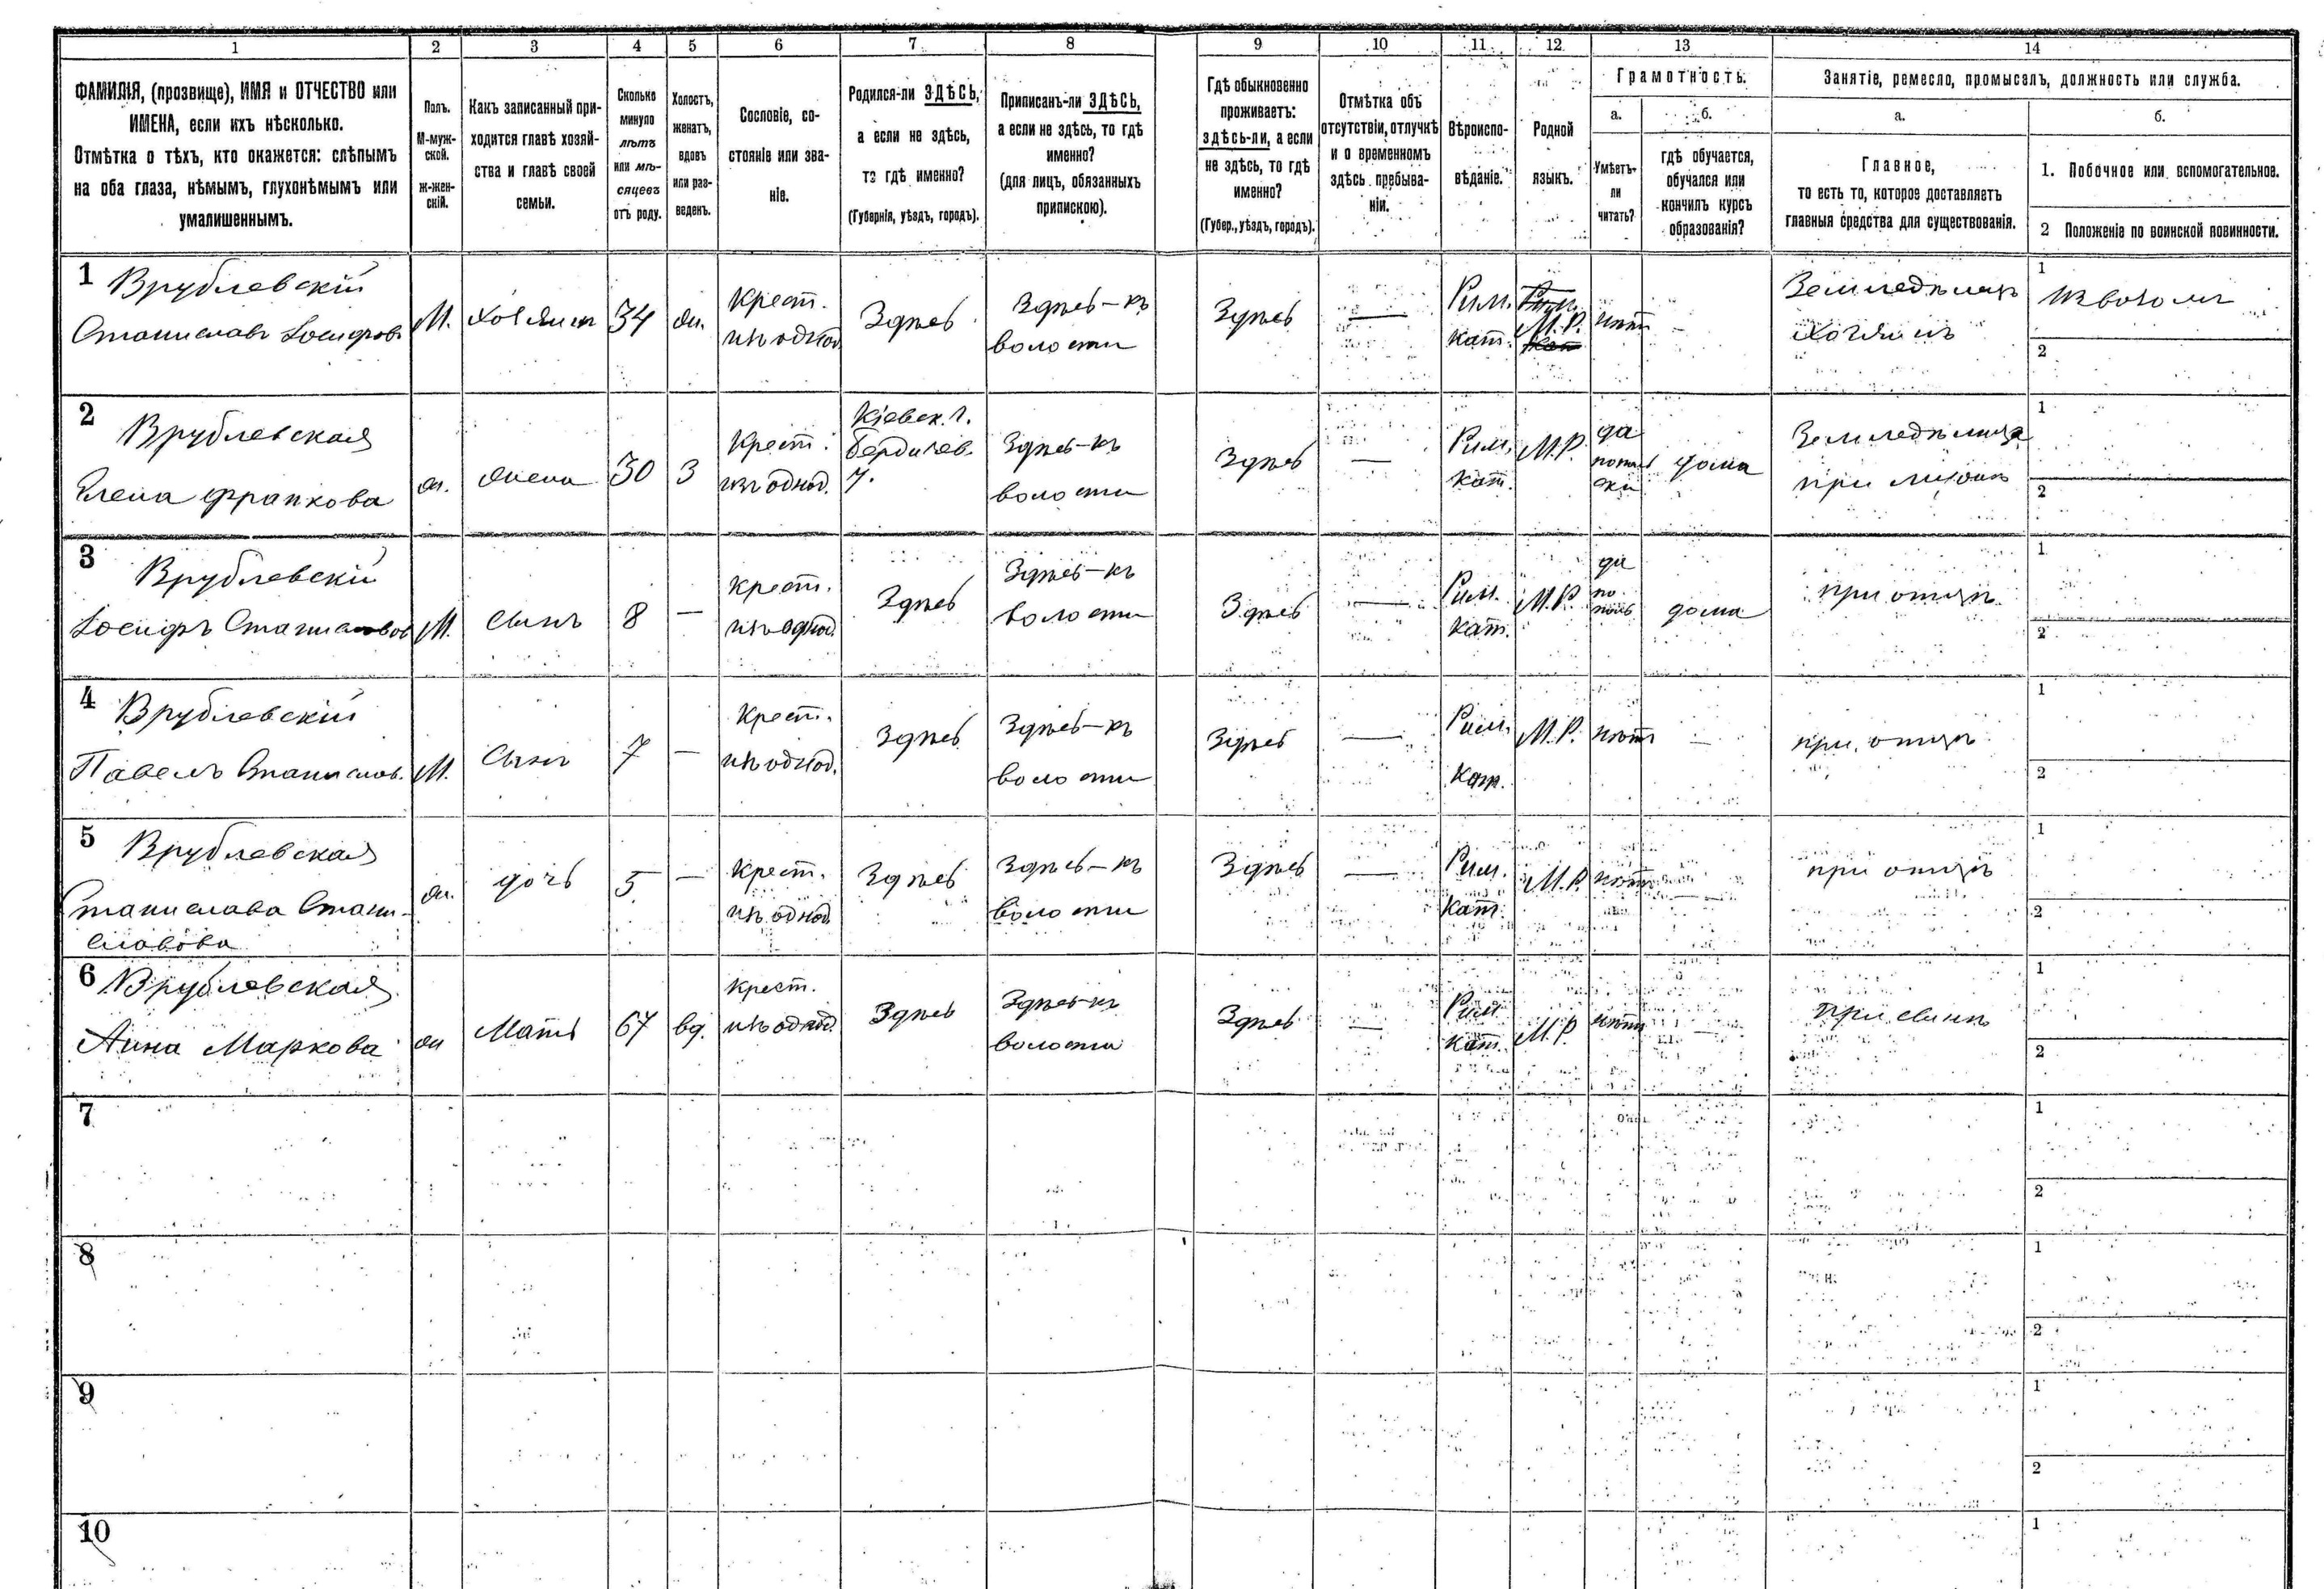 1 2 3 4 5 6 7 8 9 10 11 12 13 14
ФАМИЛІЯ, (прозвище), ИМЯ и ОТЧЕСТВО или
ИМЕНА, если ихъ нѣсколько.
Отмѣтка о тѣхъ, кто окажется: слѣпымъ
на оба глаза, нѣмымъ, глухонѣмымъ или
умалишеннымъ.
Полъ.
М-муж-
ской.
ж-жен-
скій.
Какъ записанный при-
ходится главѣ хозяй-
ства и главѣ своей
семьи.
Сколько
минуло
лѣтъ
или мѣ-
сяцевъ
отъ роду.
Холостъ,
женатъ,
вдовъ
или раз-
веденъ.
Сословіе, со-
стояніе или зва-
ніе.
Родился-ли ЗДѢСЬ,
а если не здѣсь,
то гдѣ именно?
(Губернія, уѣздъ, городъ).
Приписанъ-ли ЗДѢСЬ,
а если не здѣсь, то гдѣ
именно?
(для лицъ, обязанныхъ
припискою).
Гдѣ обыкновенно
проживаетъ:
здѣсь-ли, а если
не здѣсь, то гдѣ
именно?
(Губер., уѣздъ, городъ).
Отмѣтка объ
отсутствіи, отлучкѣ
и о временномъ
здѣсь пребыва-
ніи.
Вѣроиспо-
вѣданіе.
Родной
языкъ.
Грамотность.
а.
Умѣетъ-
ли
читать?
б.
гдѣ обучается,
обучался или
кончилъ курсъ
образованія?
Занятіе, ремесло, промыселъ, должность или служба.
а.
Главное,
то есть то, которое доставляетъ
главныя средства для существованія.
б.
1. Побочное или вспомогательное.
2 Положеніе по воинской повинности.
1
Врублевскій
Станиславъ Іосифов.
М.
хозяинъ
34
ж.
Крест.
изъ однод.
Здѣсь
Здѣсь—къ
волости
Здѣсь
—
Рим.
кат.
М.Р.
нѣтъ
—
Земледѣлецъ
хозяинъ
1 Извозом
2
2
Врублевская
Елена Франкова
ж.
жена
30
З
Крест.
изъ однод.
Кіевск. г.
Бердичев.
у.
Здѣсь—къ
волости
Здѣсь
—
Рим.
кат.
М.Р.
да
польс
ски
дома
Земледѣлица
при мужѣ
1
2
3
Врублевскій
Іосифъ Станиславов
М.
сынъ
8
—
Крест.
изъ однод.
Здѣсь
Здѣсь—къ
волости
Здѣсь
—
Рим.
кат.
М.Р.
да
по
поль
дома
при отцѣ
1
2
4
Врублевскій
Павелъ Станислав.
М.
сынъ
7
—
Крест.
изъ однод.
Здѣсь
Здѣсь—къ
волости
Здѣсь
—
Рим.
кат.
М.Р.
нѣтъ
—
при отцѣ
1
2
5
Врублевская
Станислава Стани-
славова
ж.
дочь
5
—
Крест.
изъ однод.
Здѣсь
Здѣсь—къ
волости
Здѣсь
—
Рим.
кат.
М.Р.
нѣтъ
—
при отцѣ
1
2
6
Врублевская
Анна Маркова
ж
мать
67
вд.
Крест.
изъ однод.
Здѣсь
Здѣсь-къ
волости
Здѣсь
—
Рим.
кат.
М.Р.
нѣтъ
—
при сынѣ
1
2
7
1
2
8
1
2
9
1
2
10
1